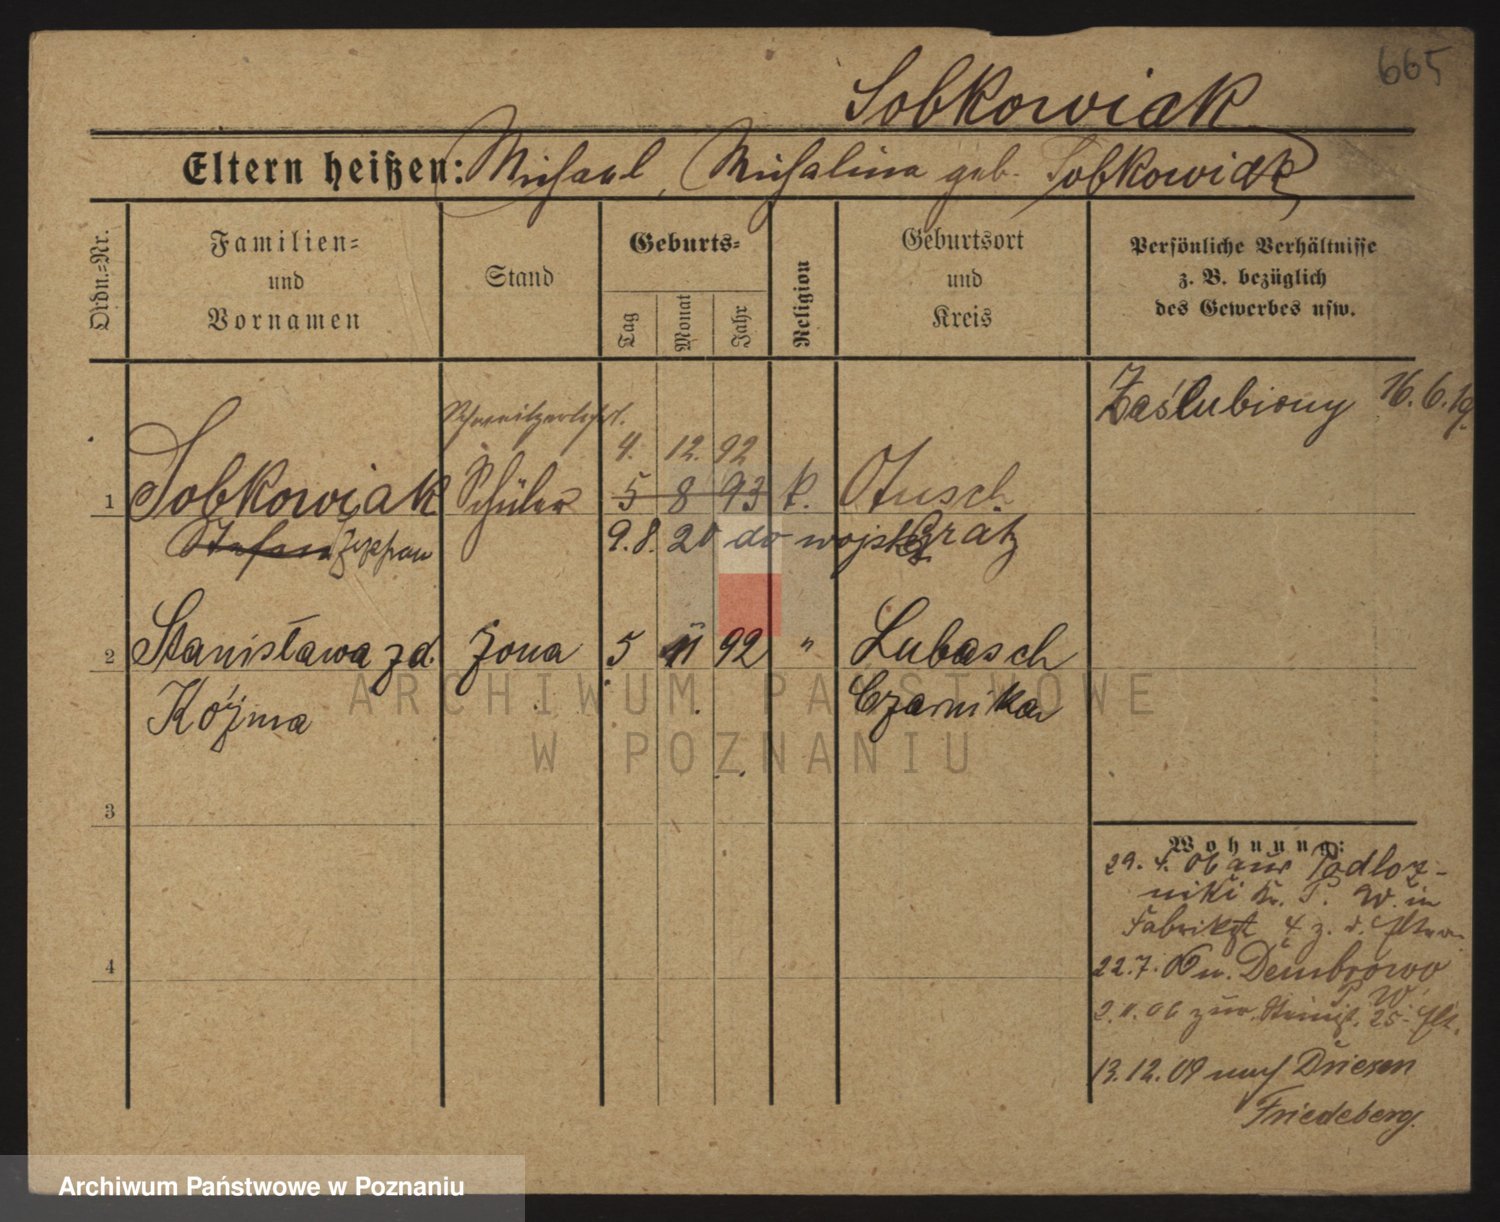 665
Sobkowiak
Eltern heißen: Michael, Michalina geb. Sobkowiak
Ordn.=Nr.
Familien=
und
Vornamen
Stand
Geburts=
Tag
Monat
Jahr
Religion
Geburtsort
und
Kreis
Persönliche Verhältnisse
z. B. bezüglich
des Gewerbes usw.
Zaślubiony 16.6.19.
4. 12. 92
1 Sobkowiak Schüler 5 8 93 k. Otusch
Stefan Szczepan 9.8. 20 do wojska Grätz
2 Stanisława zd. Żona 5 11 92 " Lubasch
Kóżma Czarnikau
3
4
Wohnung:
29. 4. 06 aus Podloz-
niki Kr. P. W. in
Fabrikst. 4 z. d. Eltern
22.7.06 n. Dembrowo
P. W.
2.11.06 zur. 25. Elt.
13.12.09 nach Driesen
Friedeberg.
ARCHIWUM PAŃSTWOWE
W POZNANIU
Archiwum Państwowe w Poznaniu